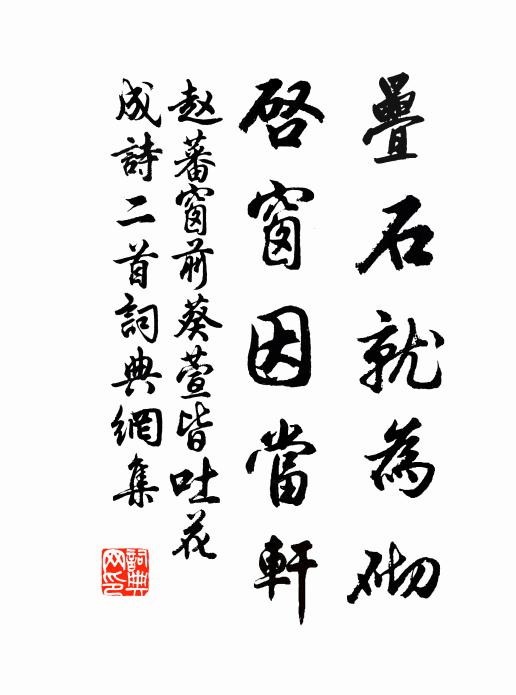 疊石就為砌
啓窗因當軒
赵蕃窗前葵萱皆吐花
成詩二首詞典網集
詞典網印